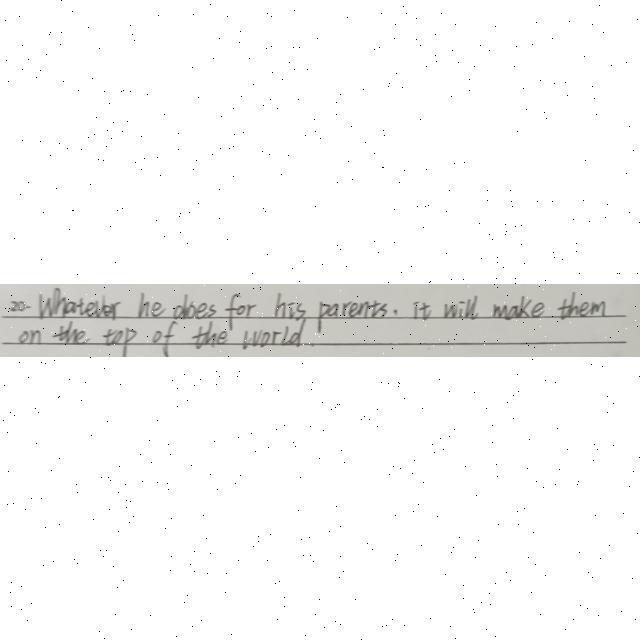 20. Whatever he does for his parents. it will make them
on the top of the world